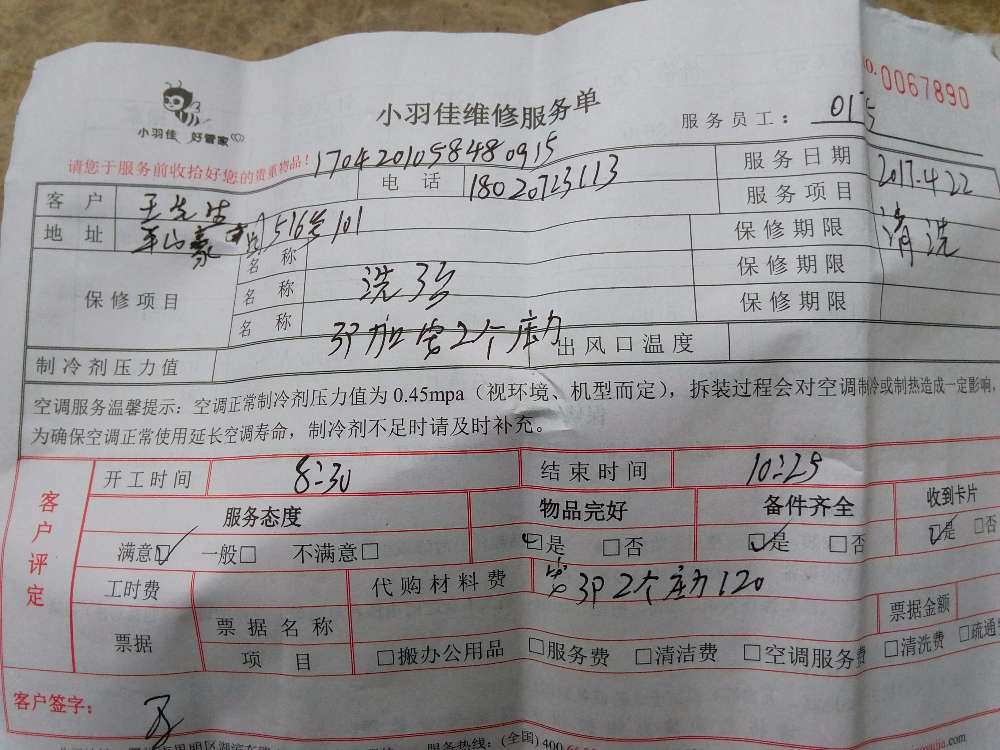 NO.0067890
小羽佳 好管家
小羽佳维修服务单
服务员工：0175
请您于服务前收拾好您的贵重物品！
170420105848 0915
客户 王先生 电话 18020723113 服务日期 2017.4.22
地址 516号101 服务项目 清洗
保修项目
名称 保修期限
名称 洗 保修期限
名称 保修期限
3P加 2个压力
制冷剂压力值 出风口温度
空调服务温馨提示：空调正常制冷剂压力值为0.45mpa（视环境、机型而定），拆装过程会对空调制冷或制热造成一定影响，
为确保空调正常使用延长空调寿命，制冷剂不足时请及时补充。
客户评定
开工时间 8:30 结束时间 10:25
服务态度 物品完好 备件齐全 收到卡片
满意☑ 一般□ 不满意□ ☑是 □否 ☑是 □否 ☑是 □否
工时费 代购材料费 3P 2个压力120
票据 票据名称 票据金额
项目 □搬办公用品 □服务费 □清洁费 □空调服务费 □清洗费 □疏通
客户签字：
服务热线：(全国)400